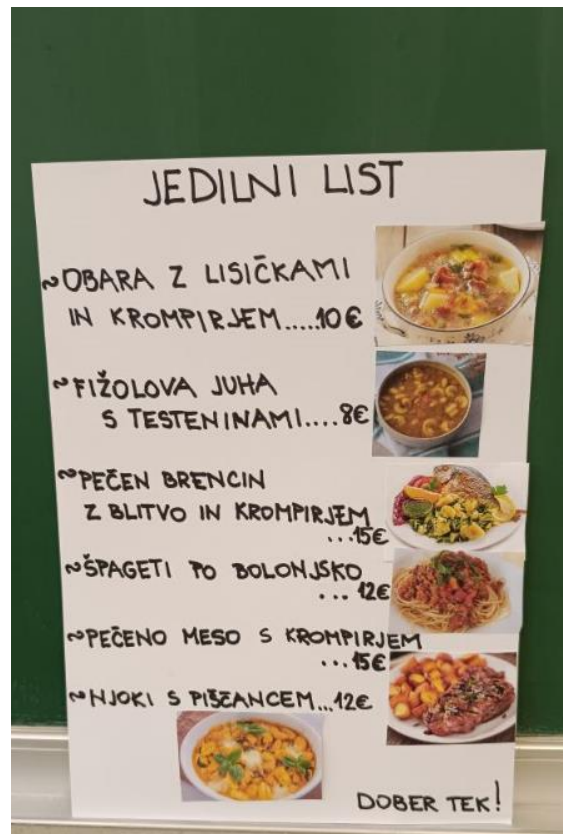 JEDILNI LIST
~OBARA Z LISIČKAMI
IN KROMPIRJEM.....10€
~FIŽOLOVA JUHA
S TESTENINAMI....8€
~PEČEN BRENCIN
Z BLITVO IN KROMPIRJEM
...15€
~ŠPAGETI PO BOLONJSKO
... 12€
~PEČENO MESO S KROMPIRJEM
...15€
~NJOKI S PIŠČANCEM...12€
DOBER TEK!